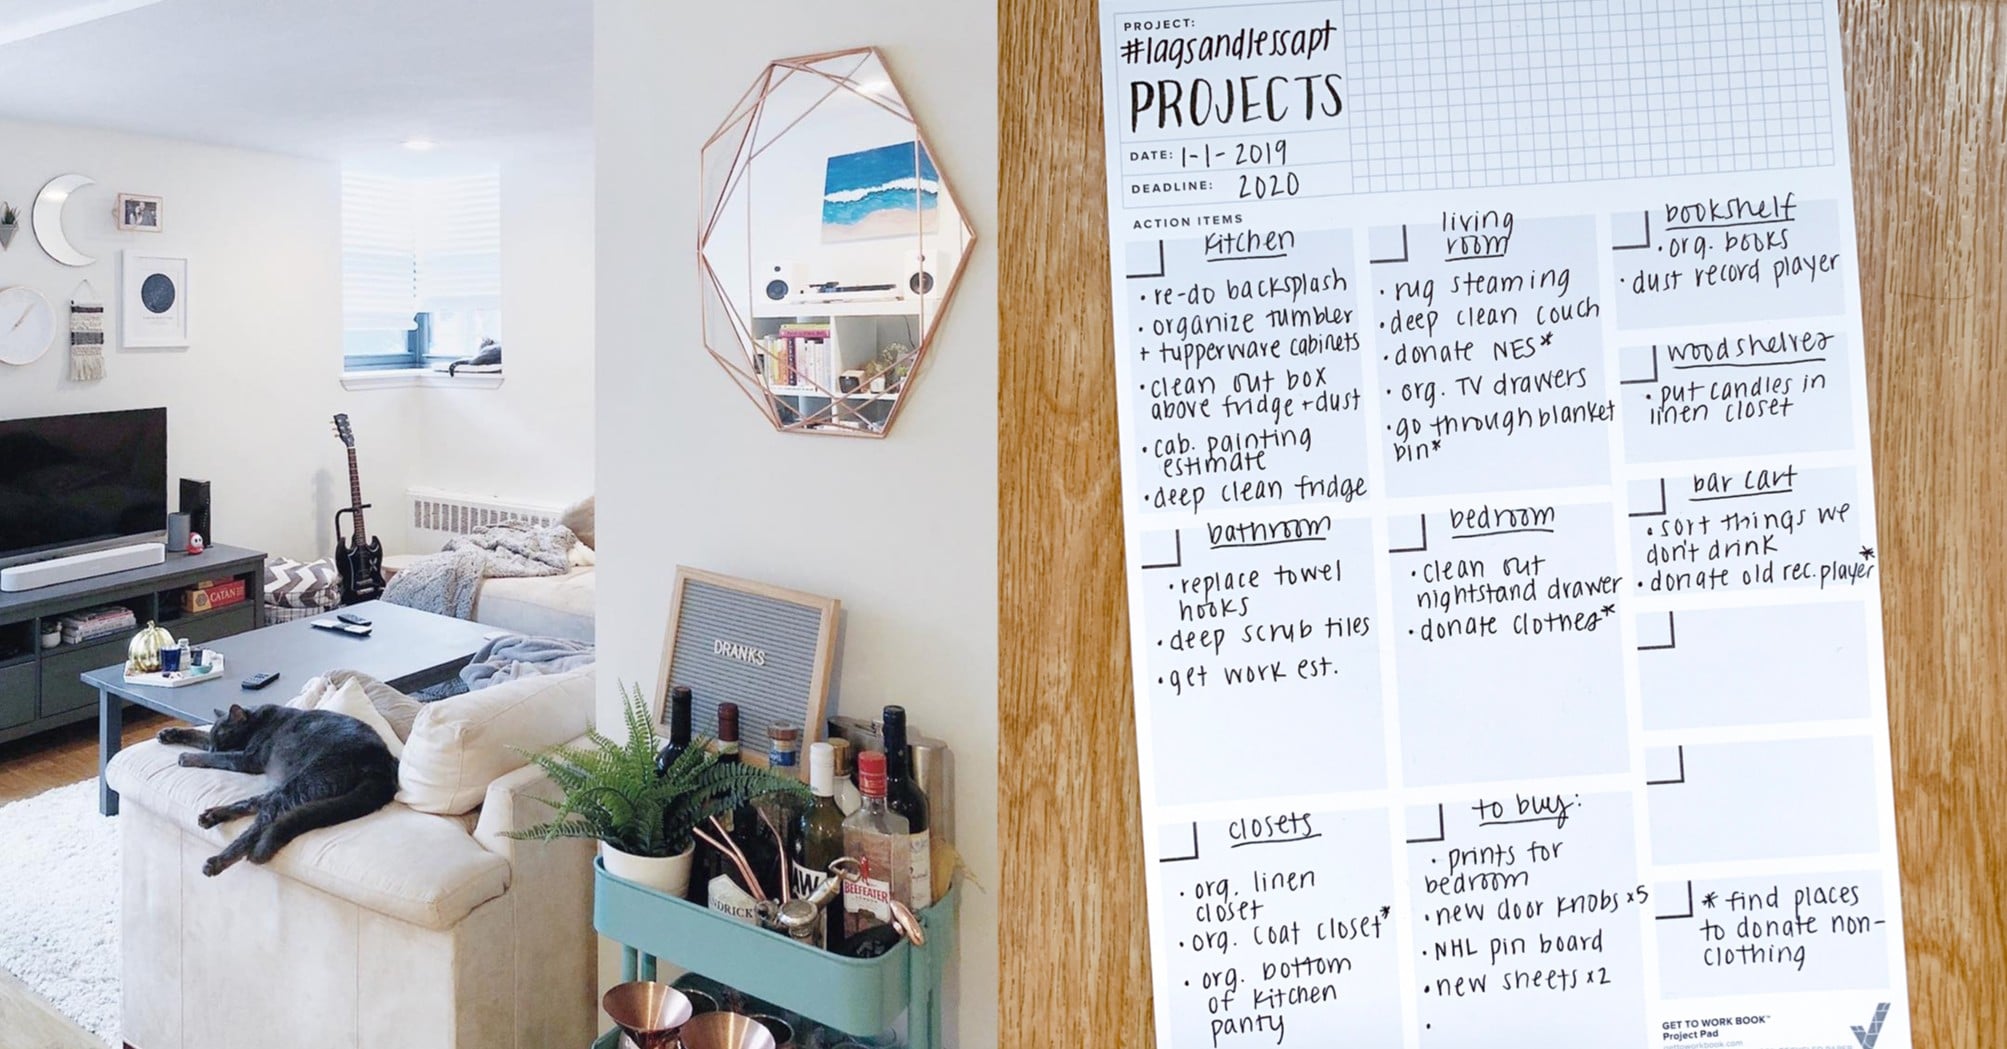 CATAN
DRANKS
HENDRICK
AW
BEEFEATER
LONDON
PROJECT:
#lagsandlessapt
PROJECTS
DATE: 1-1-2019
DEADLINE: 2020
ACTION ITEMS
kitchen
• re-do backsplash
• organize tumbler
+ tupperware cabinets
• clean out box
above fridge + dust
• cab. painting
estimate
• deep clean fridge
living
room
• rug steaming
• deep clean couch
• donate NES*
• org. TV drawers
• go through blanket
bin*
bookshelf
• org. books
• dust record player
wood shelves
• put candles in
linen closet
bar cart
• sort things we
don't drink
• donate old rec. player*
bathroom
• replace towel
hooks
• deep scrub tiles
• get work est.
bedroom
• clean out
nightstand drawer
• donate clothes*
closets
• org. linen
closet
• org. coat closet*
• org. bottom
of kitchen
panty
to buy:
• prints for
bedroom
• new door knobs x5
• NHL pin board
• new sheets x2
•
* find places
to donate non-
clothing
GET TO WORK BOOK™
Project Pad
gettoworkbook.com